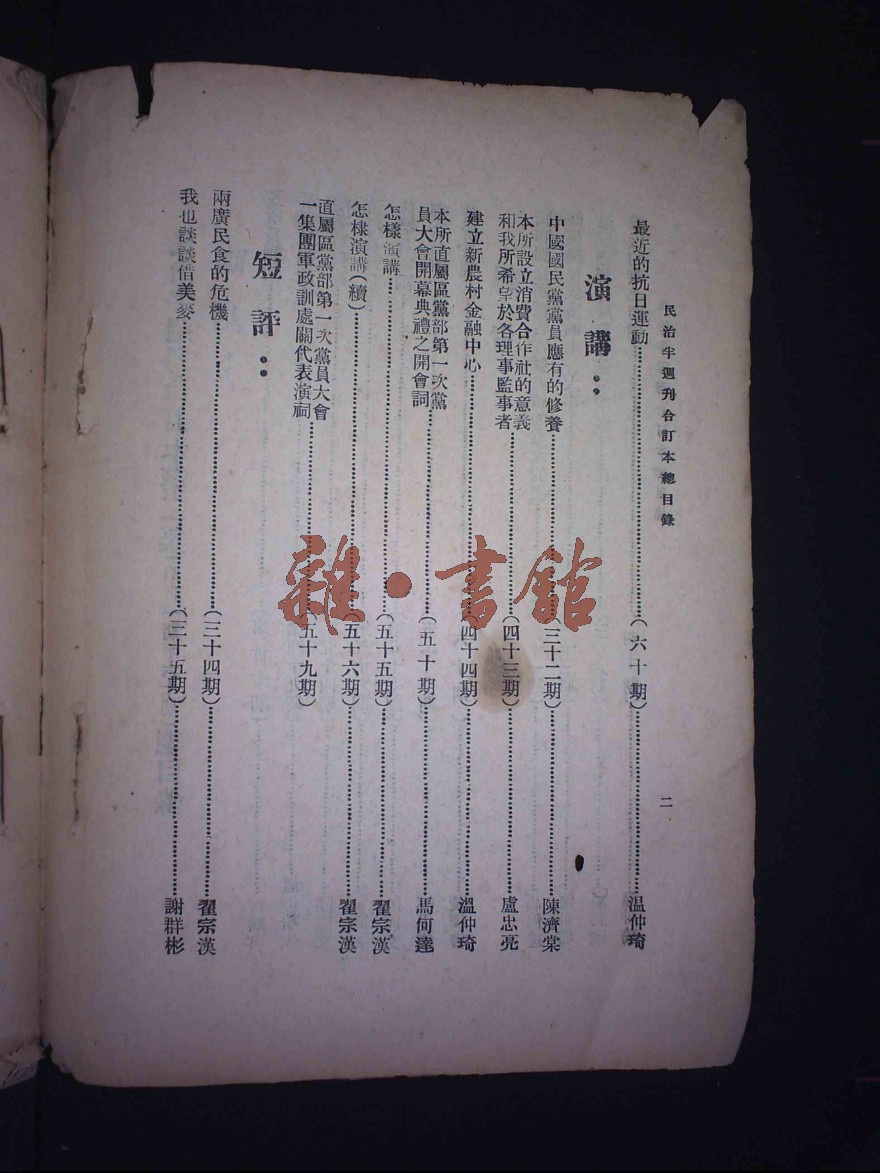 民治半週刋合訂本總目錄
二
最近的抗日運動……(六十期)……温仲琦
演講：
中國國民黨黨員應有的修養……(三十二期)……陳濟棠
本所設立消費合作社的意義
和我所希望於各理事監事者……(四十三期)……盧忠亮
建立新農村金融中心……(四十四期)……溫仲琦
本所直屬區黨部第一次黨
員大會開幕典禮之開會詞……(五十期)……馬何達
怎樣演講……(五十五期)……翟宗漢
怎棣演講(續)……(五十六期)……翟宗漢
直屬區黨部第一次黨員大會
一集團軍政訓處關代表演祠……(五十九期)
短評：
兩廣民食的危機……(三十四期)……翟宗漢
我也談談借美麥……(三十五期)……謝群彬
雜·書館